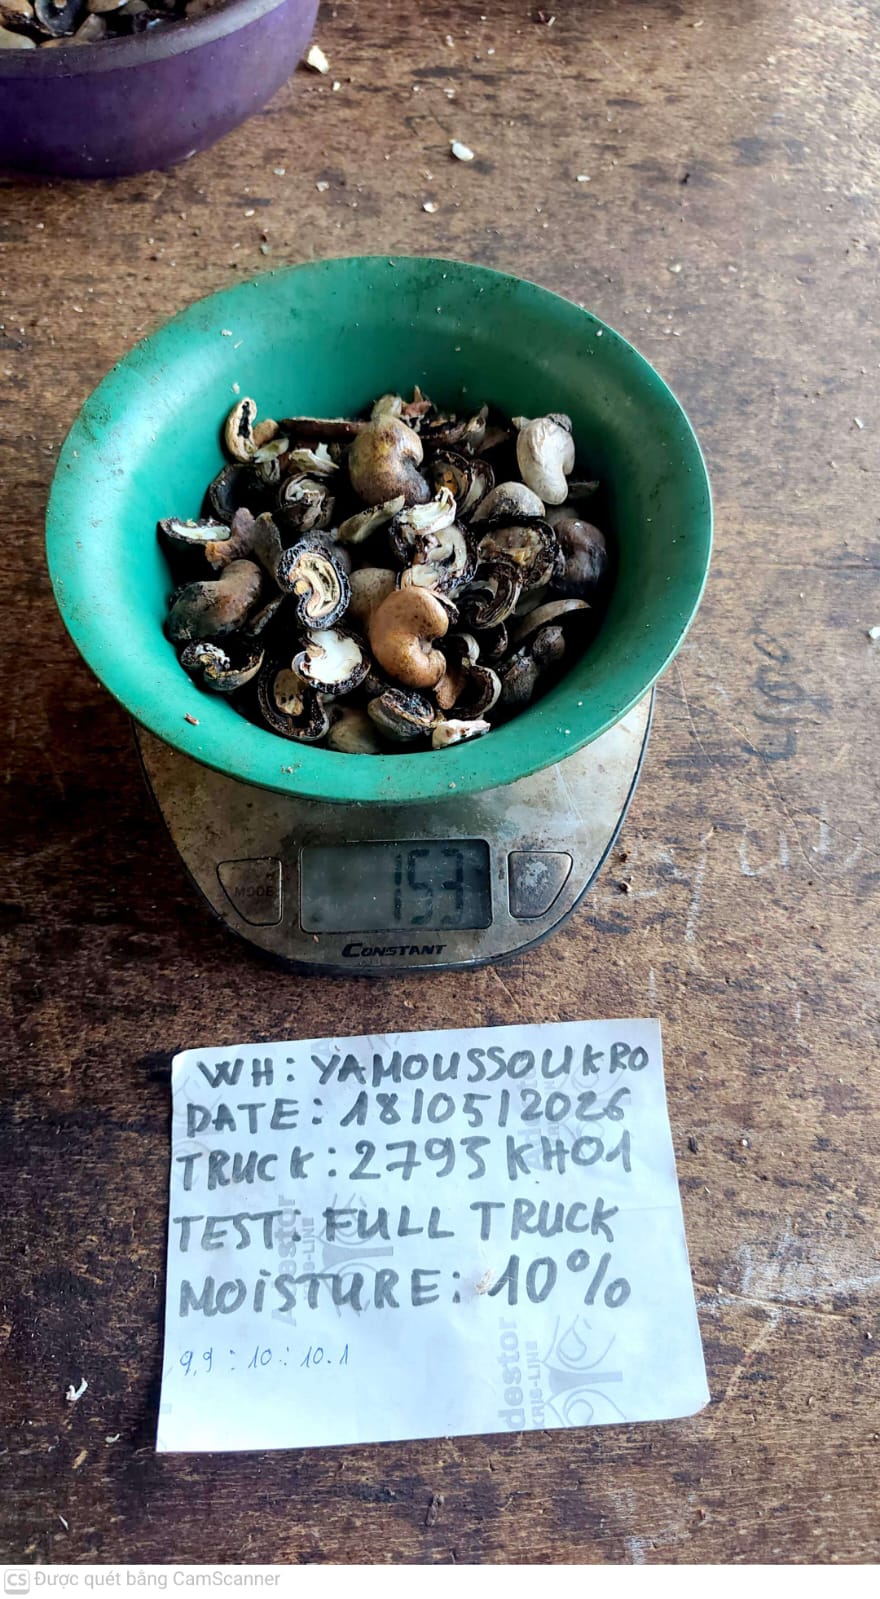 MODE
153
CONSTANT
WH: YAMOUSSOUKRO
DATE: 18/05/2026
TRUCK: 2793 KH01
TEST: FULL TRUCK
MOISTURE: 10%
9,9 : 10 : 10.1
Adestor
KRIS-LINE
destor
KRIS-LINE
CS Được quét bằng CamScanner